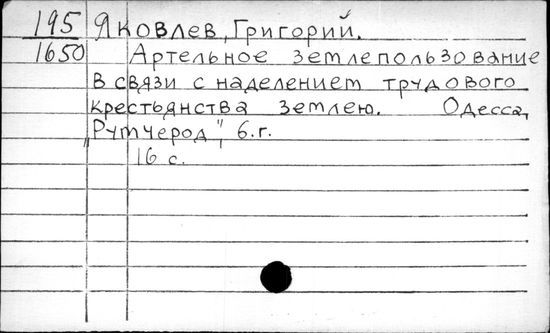 195 Яковлев, Григорий.
1650 Артельное землепользование
в связи с наделением трудового
крестьянства землею. Одесса,
„Румчерод", б.г.
16 с.